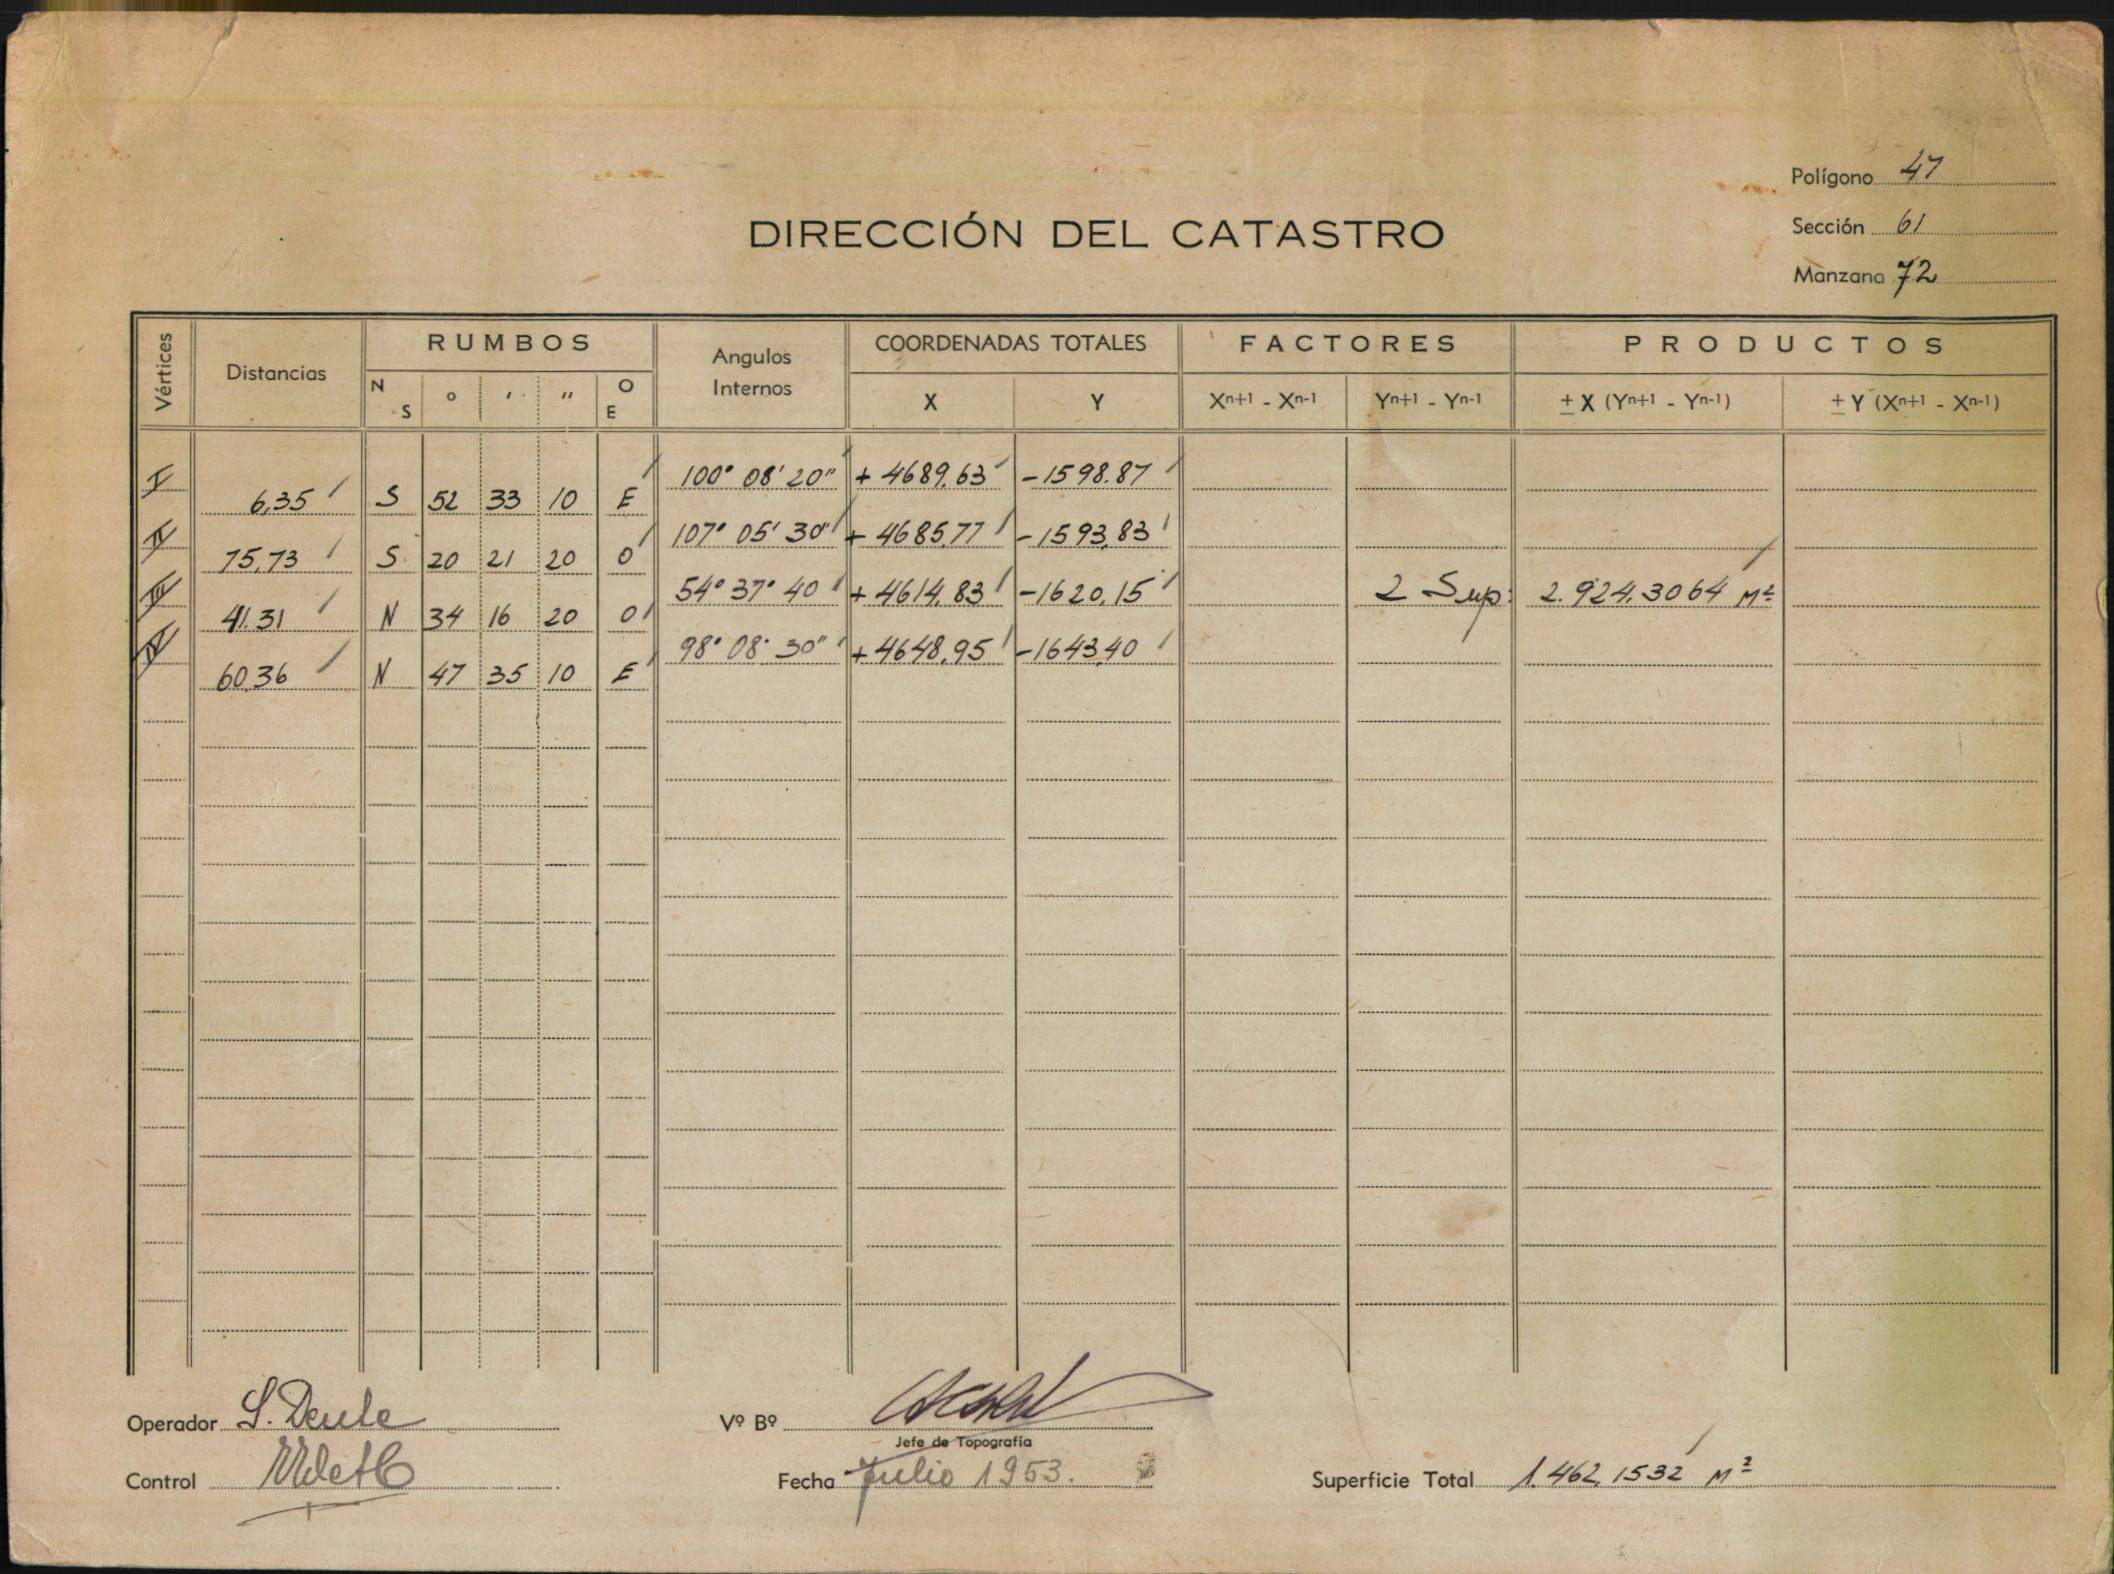 Polígono 47
DIRECCIÓN DEL CATASTRO
Sección 61
Manzana 72
Vértices Distancias RUMBOS Angulos Internos COORDENADAS TOTALES FACTORES PRODUCTOS
N S ° ′ ″ O E X Y Xn+1 - Xn-1 Yn+1 - Yn-1 ± X (Yn+1 - Yn-1) ± Y (Xn+1 - Xn-1)
I 100° 08' 20" + 4689,63 -1598.87
6,35 S 52 33 10 E
II 107° 05' 30" + 4685,77 -1593,83
75,73 S 20 21 20 O
III 54° 37° 40 + 4614,83 -1620,15 2 Sup: 2.924,3064 M²
41.31 N 34 16 20 O
IV 98° 08' 30" +4648,95 -1643,40
60,36 N 47 35 10 E
Operador S. Deule
Vº Bº
Jefe de Topografía
Control
Fecha Julio 1953.
Superficie Total 1.462,1532 M²